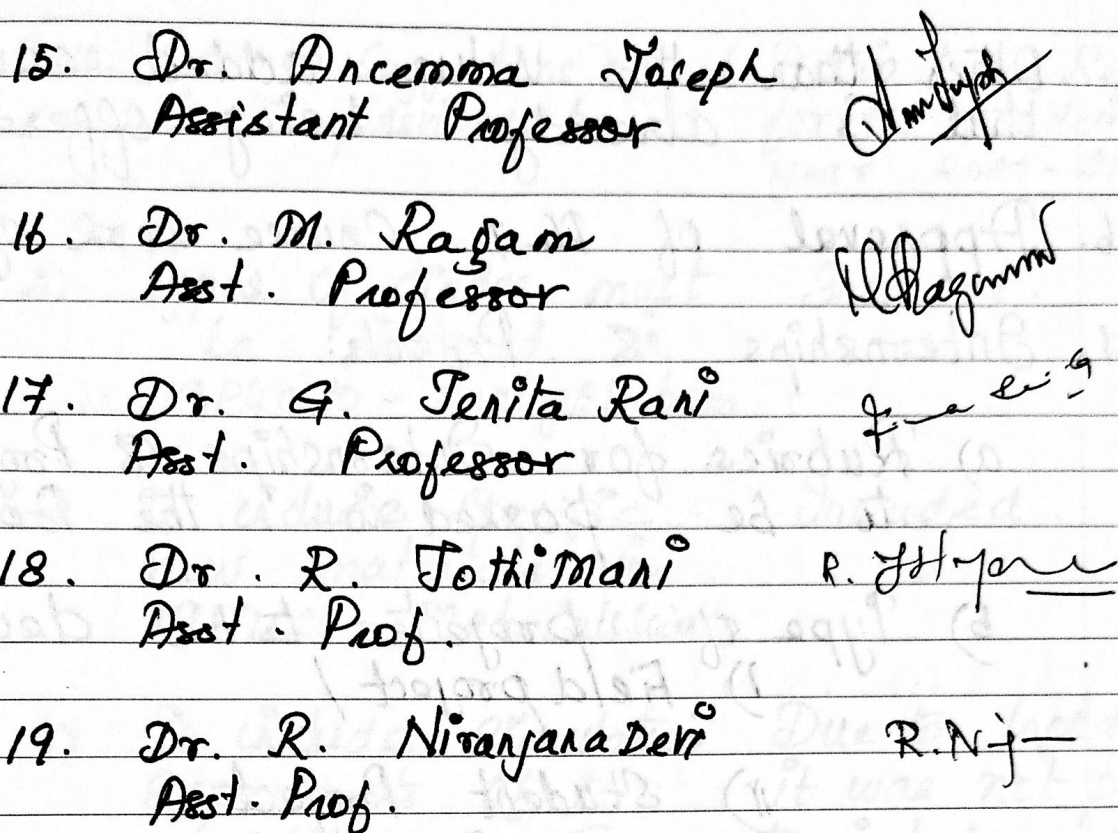 15. Dr. Ancemma Joseph
Assistant Professor
16. Dr. M. Ragam
Asst. Professor
M Ragam
17. Dr. G. Jenita Rani
Asst. Professor
18. Dr. R. Jothi Mani
Asst. Prof.
R.
19. Dr. R. Niranjana Devi
Asst. Prof.
R. N